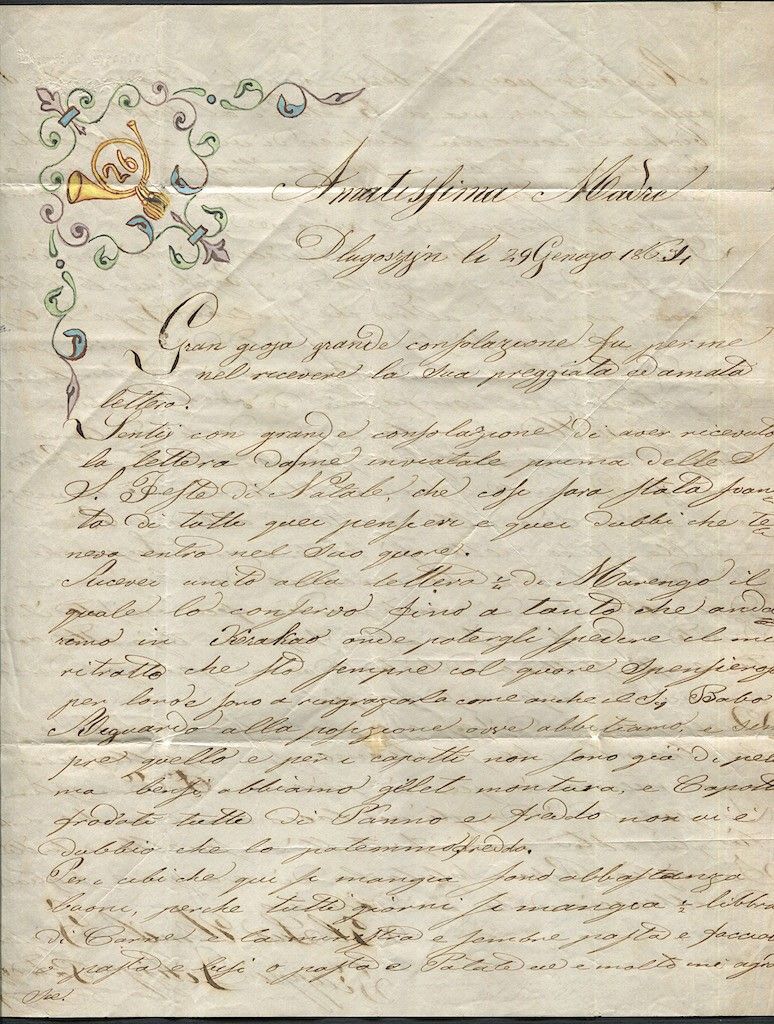 26
Amatissima Madre
Dlugoszyn li 29 Genajo 1864,
Gran gioja grande consolazione fu per me
nel ricevere la sua preggiata ed amata
lettera.
Sentij con grande consolazione di aver ricevuto
la lettera da me inviatale prima delle S
S. Feste di Natale, che cosi sara stata svan-
ta di tutti quei pensieri e quei dubbi che te-
neva entro nel suo quore.
Ricevei unito alla lettera ½ di Marengo il
quale lo conservo fino a tanto che anda
remo in Krakao onde potergli spedire il mi
ritratto che stò sempre col quore spensiero
per loro e sono a ringraziarla come anche il Sig Babo
Riguardo alla posizione ove abbitiamo, e se
pre quello e per i capotti non sono già di pel
ma bensi abbiamo gillet montura, e Capott
frodati tutti di Panno e freddo non vi è
dubbio che lo patemmo freddo.
Per i cibi che qui si mangia sono abbastanza
buoni, perche tutti giorni si mangia ½ libbra
di Carne e la minestra e sempre pasta e faccio
o pasta e risi o pasta e Patate che e molto mi agra
sce!